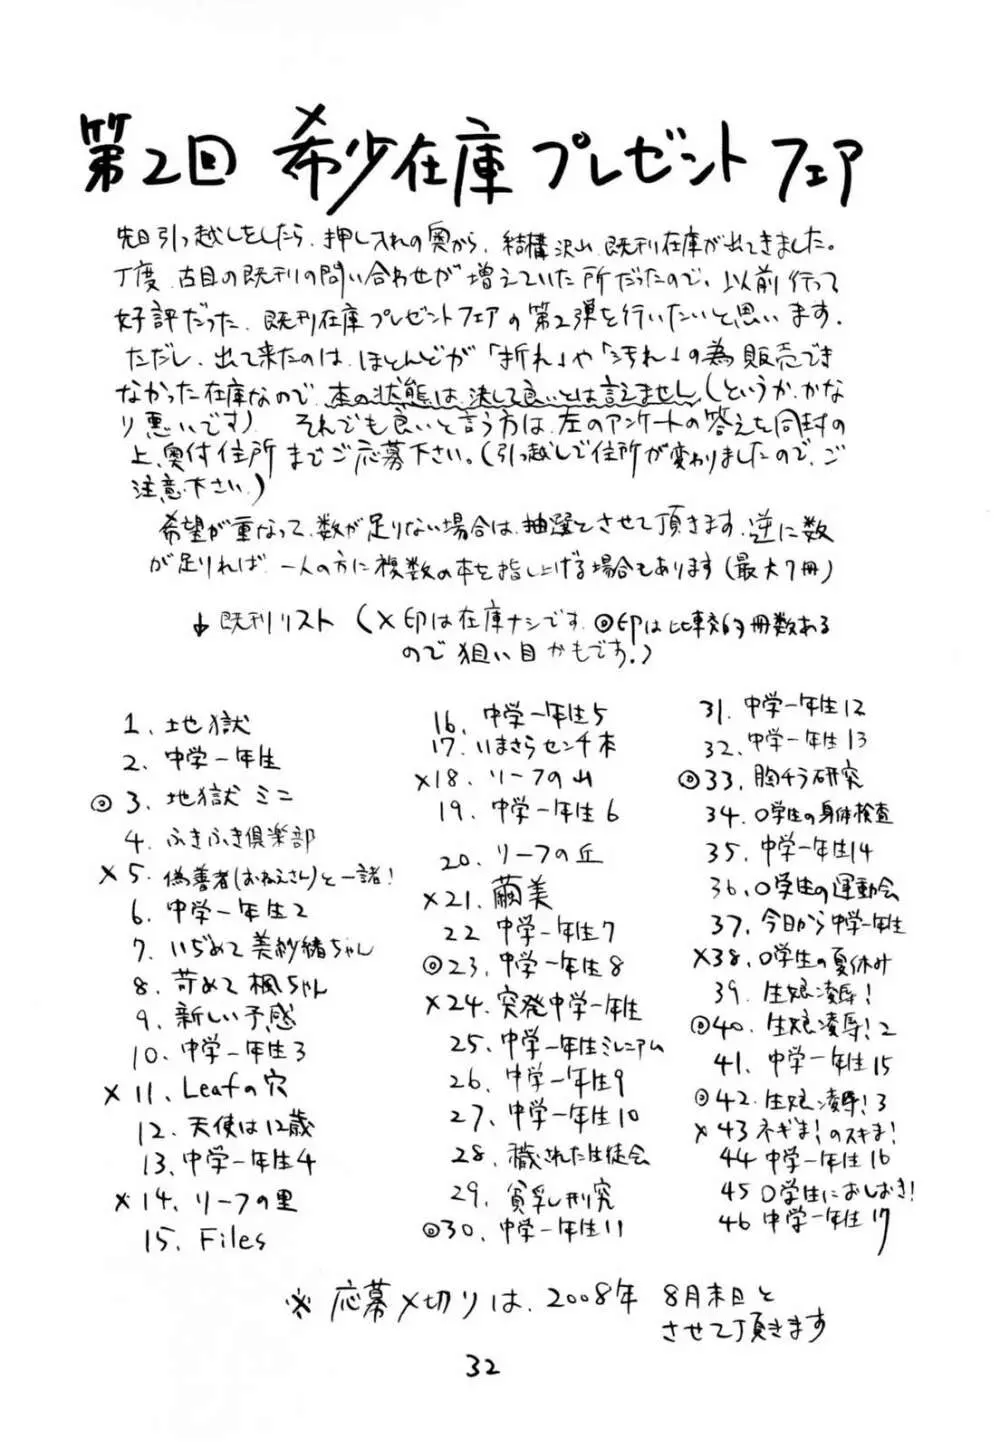 第2回 希少在庫プレゼントフェア
先日引っ越しをしたら、押し入れの奥から、結構沢山既刊在庫が出てきました。
丁度、古目の既刊の問い合わせが増えていた所だったので、以前行って
好評だった、既刊在庫プレゼントフェアの第2弾を行いたいと思います。
ただし、出て来たのは、ほとんどが「折れ」や「汚れ」の為販売でき
なかった在庫なので、本の状態は、決して良いとは言えません(というか、かな
り悪いです)。それでも良いと言う方は、左のアンケートの答えを同封の
上、奥付住所までご応募下さい。(引っ越しで住所が変わりましたので、ご
注意下さい。)
希望が重なって、数が足りない場合は、抽選とさせて頂きます。逆に数
が足りれば、一人の方に複数の本を差し上げる場合もあります(最大7冊)
↓既刊リスト (×印は在庫ナシです。◎印は比較的冊数ある
ので狙い目かもです。)
1. 地獄
2. 中学一年生
◎3. 地獄ミニ
4. ふきふき倶楽部
×5. 偽善者(おねえさん)と一諸!
6. 中学一年生2
7. いぢめて美紗緒ちゃん
8. 苛めて楓ちゃん
9. 新しい予感
10. 中学一年生3
×11. Leafの穴
12. 天使は12歳
13. 中学一年生4
×14. リーフの里
15. Files
16. 中学一年生5
17. いまさらセンチ本
×18. リーフの山
19. 中学一年生6
20. リーフの丘
×21. 繭美
22 中学一年生7
◎23. 中学一年生8
×24. 突発中学一年生
25. 中学一年生ミレニアム
26. 中学一年生9
27. 中学一年生10
28. 穢された生徒会
29. 貧乳し刑究
◎30. 中学一年生11
31. 中学一年生12
32. 中学一年生13
◎33. 胸チラ研究
34. 〇学生の身体検査
35. 中学一年生14
36. 〇学生の運動会
37. 今日から中学一年生
×38. 〇学生の夏休み
39. 生娘凌辱!
◎40. 生娘凌辱!2
41. 中学一年生15
◎42. 生娘凌辱!3
×43 ネギま!のスキま!
44 中学一年生16
45 〇学生におしおき!
46 中学一年生17
※ 応募〆切りは、2008年 8月末日と
させて頂きます
32